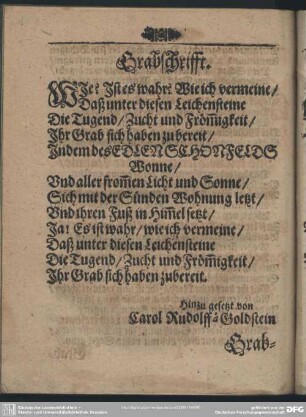 Grabschrifft.
WIe? Ist es wahr? Wie ich vermeine/
Daß unter diesen Leichensteine
Die Tugend/ Zucht und Frömigkeit/
Ihr Grab sich haben zu bereit/
Indem des EDLEN SCHONFELDS
Wonne/
Vnd aller from̃en Licht und Sonne/
Sich mit der Sünden Wohnung letzt/
Vnd ihren Fuß in Him̃el setzt/
Ja! Es ist wahr/ wie ich vermeine/
Daß unter diesen Leichensteine
Die Tugend/ Zucht und Fröm̃igkeit/
Ihr Grab sich haben zubereit.
Hinzu gesetzt von
Carol Rudolff â Goldstein
Grab-